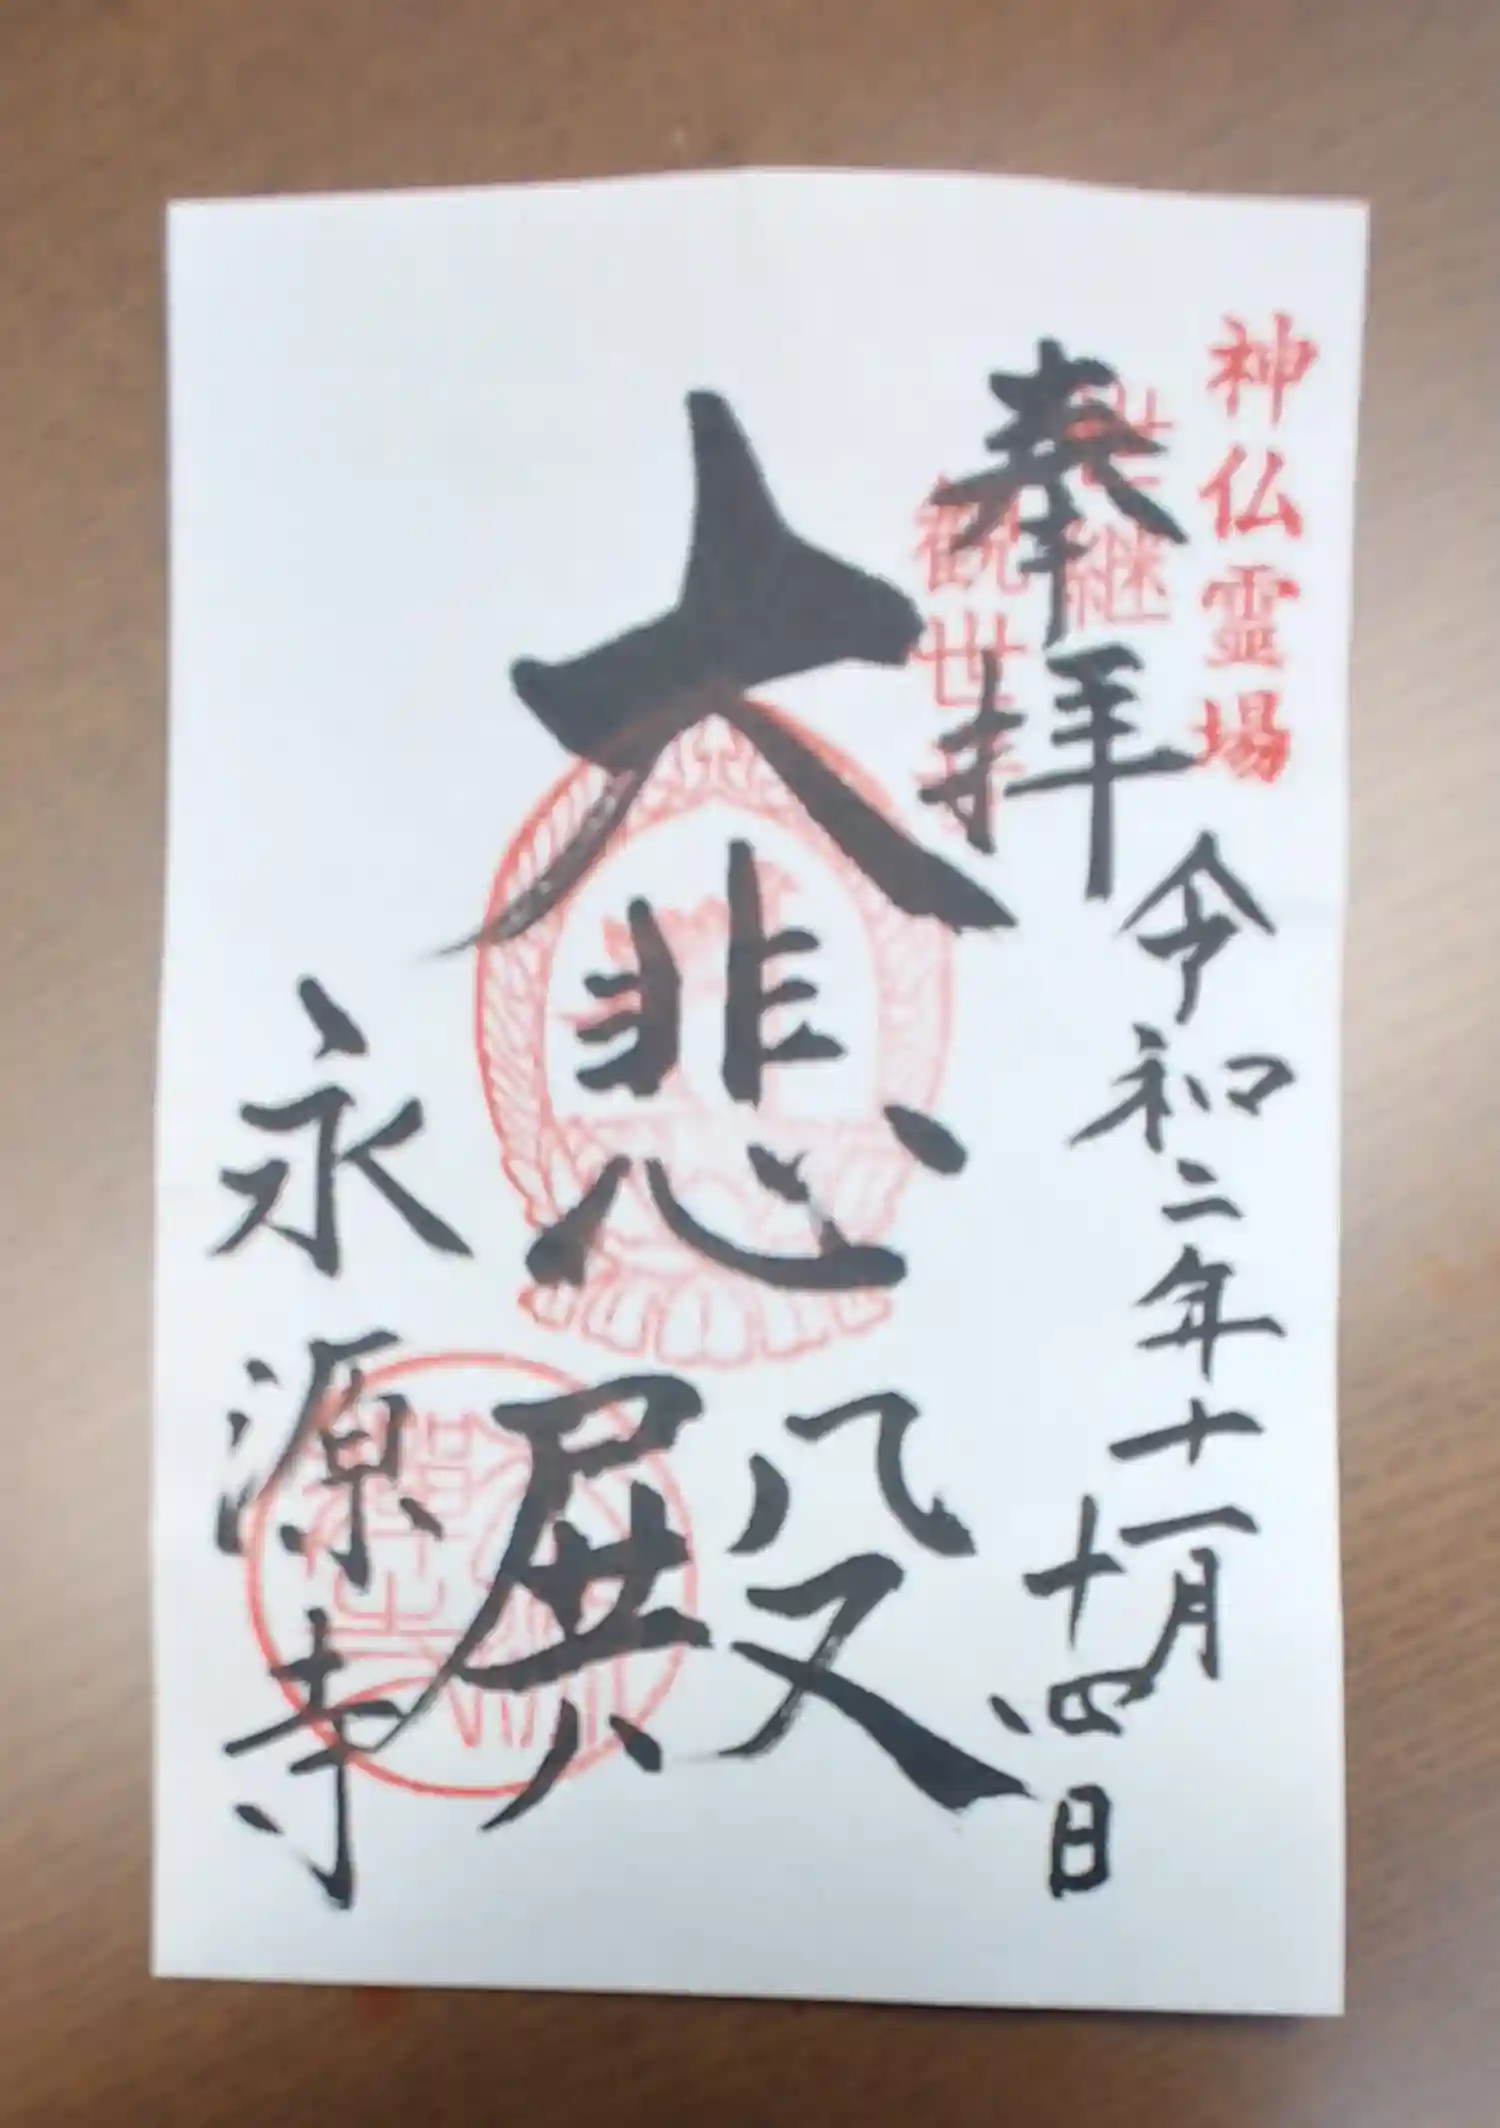 神仏霊場
世継
観世音
奉拝
令和二年十一月
十四日
大悲殿
永源寺